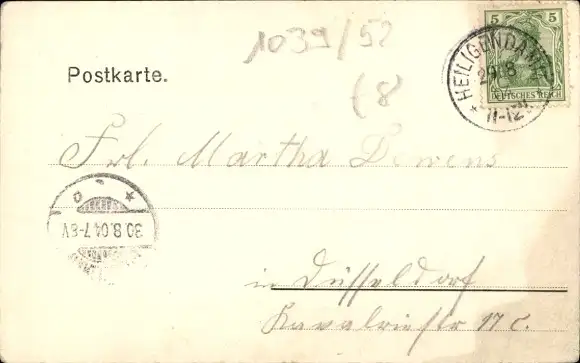 1039/52
(8
Postkarte.
5 5
DEUTSCHES REICH
* HEILIGENDAMM
29.8
11-12V
Frl. Martha Dewens
30.8.04.7-8V
in Düsseldorf
Kavalriestr 17 c.